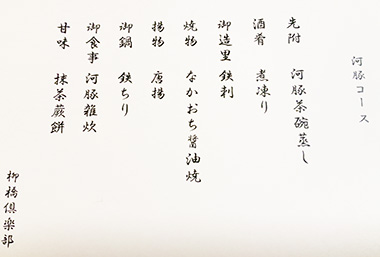 河豚コース
先附　河豚茶碗蒸し
酒肴　煮凍り
御造里　鉄刺
焼物　なかおち醤油焼
揚物　唐揚
御鍋　鉄ちり
御食事　河豚雑炊
甘味　抹茶蕨餅
柳橋倶楽部